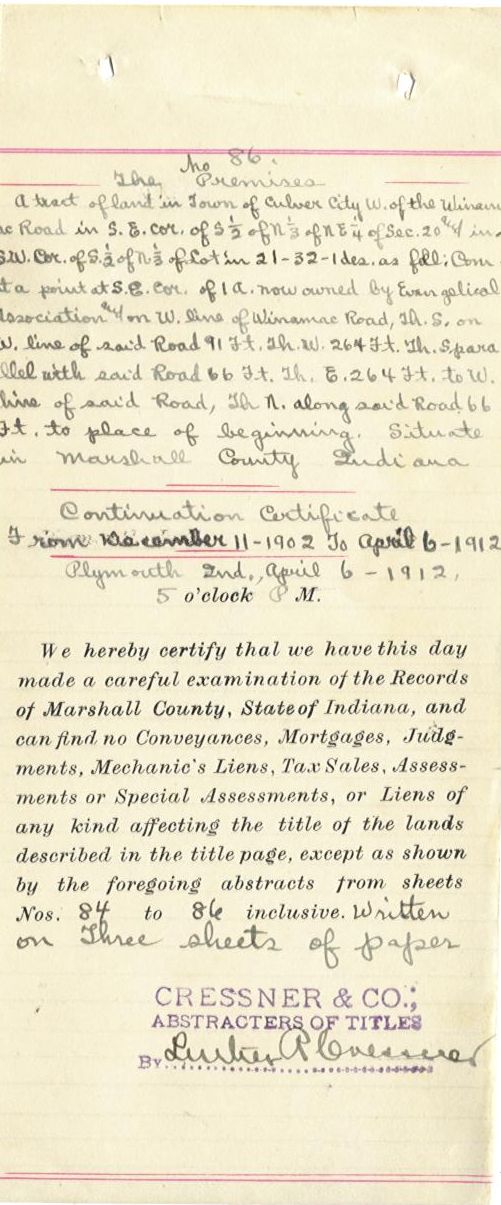 No 86.
The Premises
A tract of land in Town of Culver City W. of the Winam
ac Road in S.E. cor. of S ½ of N ⅓ of N E ¼ of Sec. 20 & in
S.W. Cor. of S. ½ of N ⅓ of Lot in 21-32-1 des. as foll: Com
at a point at S.E. cor. of 1 A. now owned by Evangelical
Association & on W. line of Winamac Road, Th. S. on
W. line of said Road 91 Ft. Th. W. 264 Ft. Th. S. para
llel with said Road 66 Ft. Th. E. 264 Ft. to W.
line of said Road, Th N. along said Road 66
Ft. to place of beginning. Situate
in Marshall County Indiana
Continuation Certificate
From December 11-1902 To April 6-1912
Plymouth Ind., April 6-1912,
5 o'clock P M.
We hereby certify that we have this day
made a careful examination of the Records
of Marshall County, State of Indiana, and
can find no Conveyances, Mortgages, Judg-
ments, Mechanic's Liens, Tax Sales, Assess-
ments or Special Assessments, or Liens of
any kind affecting the title of the lands
described in the title page, except as shown
by the foregoing abstracts from sheets
Nos. 84 to 86 inclusive. Written
on Three sheets of paper
CRESSNER & CO.;
ABSTRACTERS OF TITLES
By Luther R Cressner